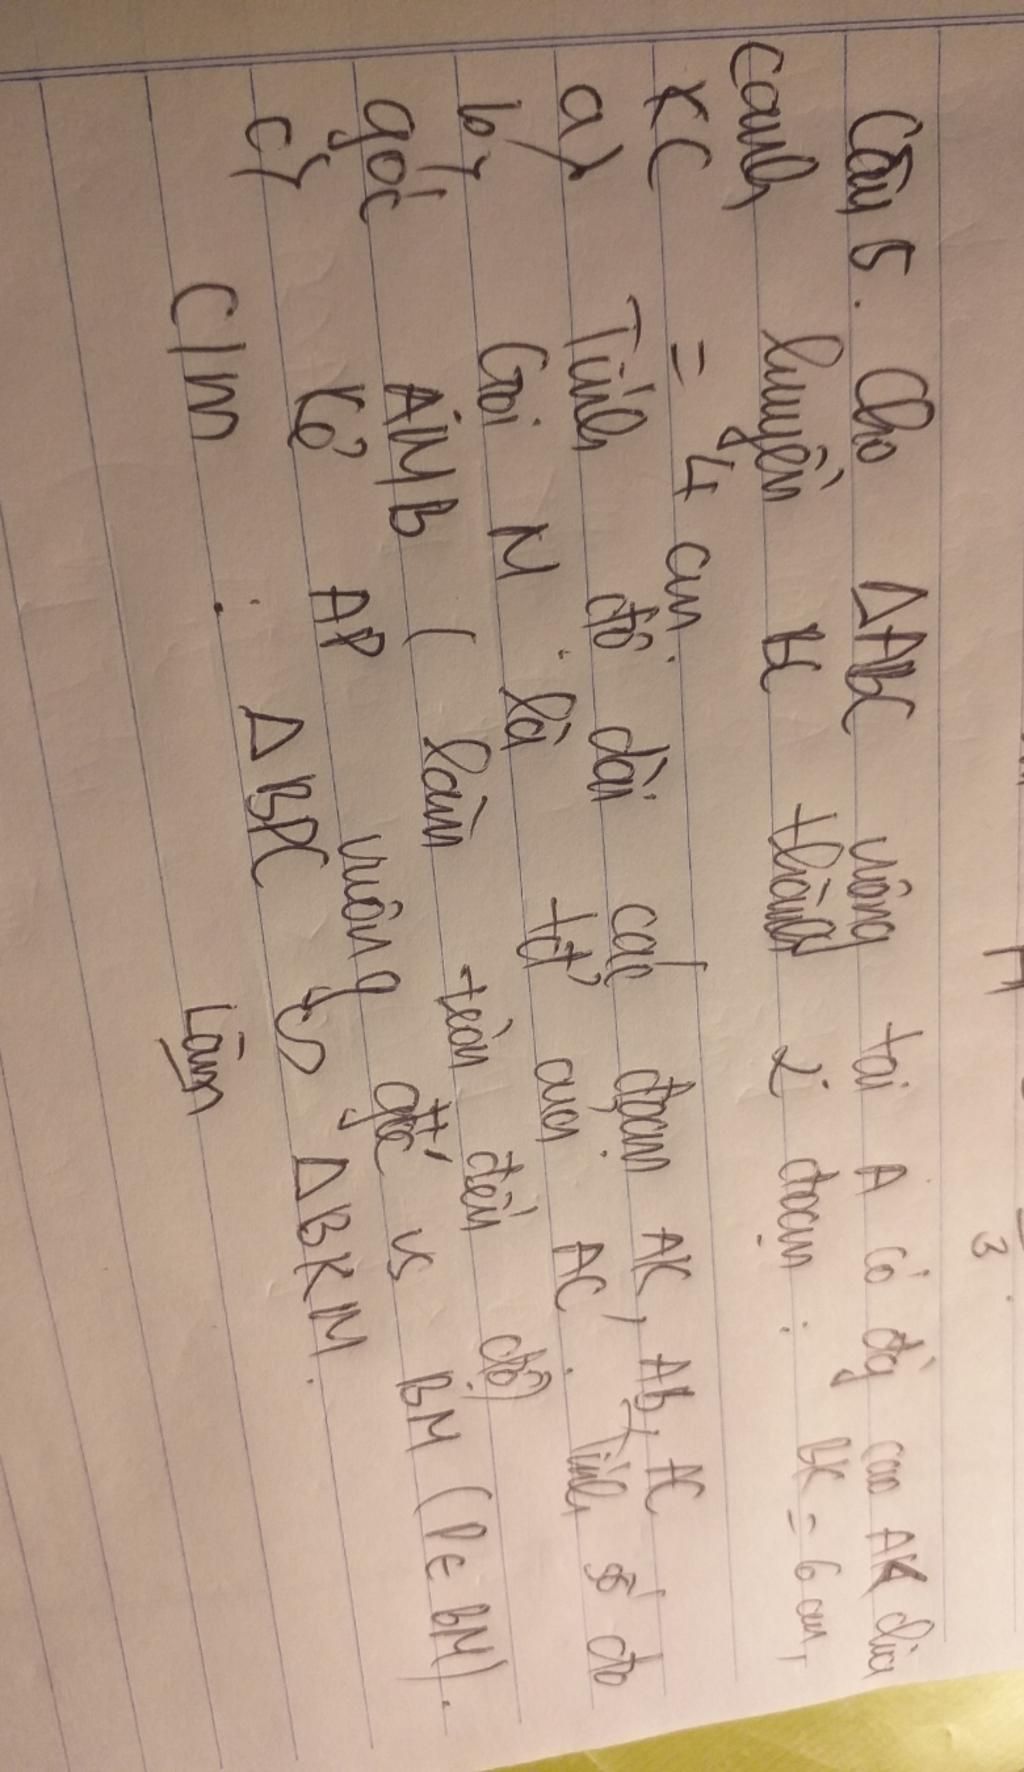 Câu 5. Cho ΔABC vuông tại A có đg cao AK chia
cạnh huyền thành 2 đoạn : BK = 6 cm,
KC = 4 cm.
a) Tính độ dài các đoạn AK, AB, AC
b) Gọi M là tđ' của AC. Tính số đo
góc AMB ( làm tròn đến độ)
c) Kẻ AP vuông góc vs BM (P ∈ BM).
C/m ΔBPC ∽ ΔBKM.
Làm
3